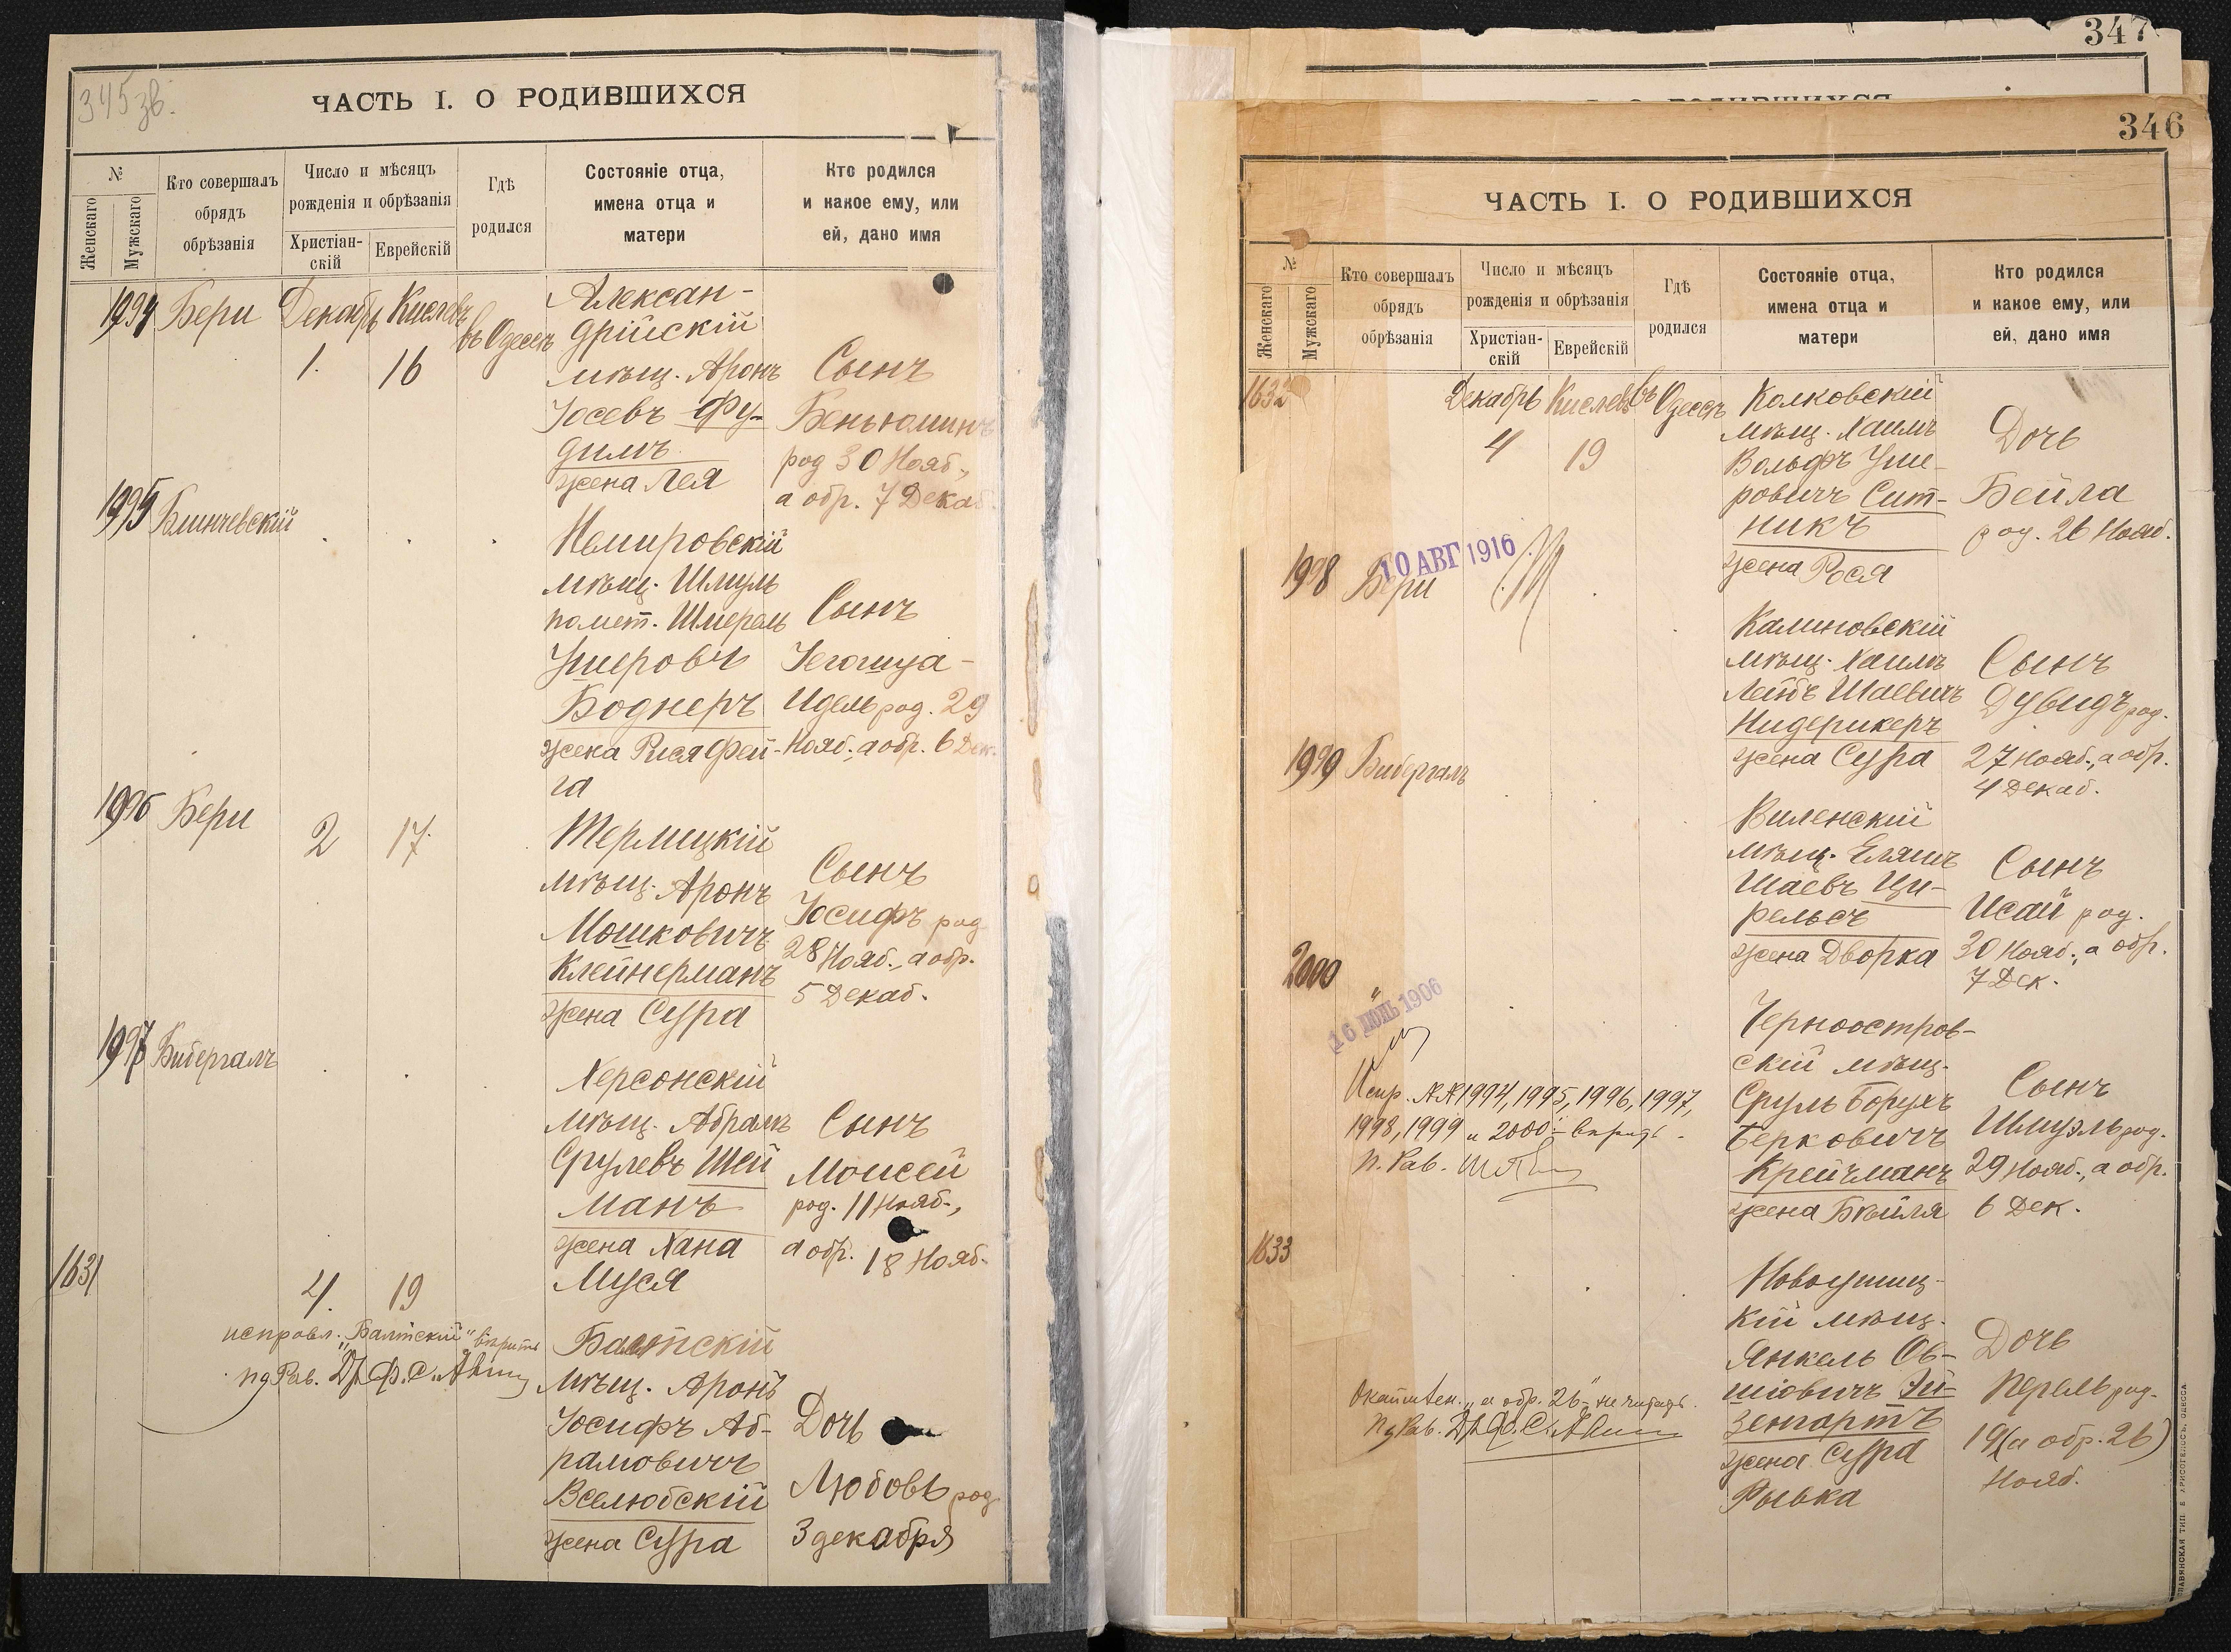 345 зв.
ЧАСТЬ I. О РОДИВШИХСЯ
№
Женскаго
Мужскаго
Кто совершалъ
обрядъ
обрѣзанія
Число и мѣсяцъ
рожденія и обрѣзанія
Христіан-
скій
Еврейскій
Гдѣ
родился
Состояніе отца,
имена отца и
матери
Кто родился
и какое ему, или
ей, дано имя
1994 Бери Декабрь Кислевъ въ Одессѣ
1. 16
Алексан-
дрійскій
мѣщ. Аронъ
Іосевъ Фу-
димъ
жена Лея
Сынъ
Беньюминъ
род 30 Нояб.,
а обр. 7 Декаб.
1995 Блинчевскій
Немировскій
мѣщ. Шмуль
помет. Шмерель
Ушеровъ
Боднеръ
жена Рися Фей-
га
Сынъ
Іегошуа-
Идель род. 29
Нояб., а обр. 6 Дек.
1996 Бери 2 17.
Терлицкій
мѣщ. Аронъ
Мошковичъ
Клейнерманъ
жена Сура
Сынъ
Іосифъ род
28 Нояб., а обр.
5 Декаб.
1997 Бибергалъ
Херсонскій
мѣщ. Абрамъ
Срулевъ Шей
манъ
жена Хана
Муся
Сынъ
Моисей
род. 11 Нояб.,
а обр. 18 Нояб.
1631 4. 19
исправл. „Балтскій" вѣрить
пд Рав. Др Ф. С.
Балтскій
мѣщ. Аронъ
Іосифъ Аб-
рамовичъ
Вселюбскій
жена Сура
Дочь
Любовь род
3 декабря
347
346
ЧАСТЬ I. О РОДИВШИХСЯ
№
Женскаго
Мужскаго
Кто совершалъ
обрядъ
обрѣзанія
Число и мѣсяцъ
рожденія и обрѣзанія
Христіан-
скій
Еврейскій
Гдѣ
родился
Состояніе отца,
имена отца и
матери
Кто родился
и какое ему, или
ей, дано имя
1632 Декабрь Кислевъ въ Одессѣ
4 19
Колковскій
мѣщ. Хаимъ
Вольфъ Уше-
ровичъ Сит-
никъ
жена Рося
Дочь
Бейла
род. 26 Нояб.
10 АВГ 1916
1998 Бери
Калиновскій
мѣщ. Хаимъ
Лейбъ Шаевичъ
Нидерикеръ
жена Сура
Сынъ
Дувидъ род.
27 Нояб., а обр.
4 Декаб.
1999 Бибергалъ
Виленскій
мѣщ. Еляшъ
Шаевъ Ци-
рельсъ
жена Дворка
Сынъ
Исай род.
30 Нояб., а обр.
7 Дек.
2000 "
16 ІЮНЬ 1906
Испр. №№ 1994, 1995, 1996, 1997,
1998, 1999 и 2000 - вѣрить.
п. Рав.
Черноостров-
скій мѣщ.
Сруль Борухъ
Берковичъ
Крейчманъ
жена Бейля
Сынъ
Шмуэль род.
29 Нояб., а обр.
6 Дек.
1633
Новоушиц-
кій мѣщ.
Янкель Ов-
шіовичъ Эй-
зенгартъ
жена Сура
Рывка
Дочь
Перель род.
19 (а обр. 26)
Нояб.
„а обр. 26" не читать.
пд Рав. Др Ф. С.